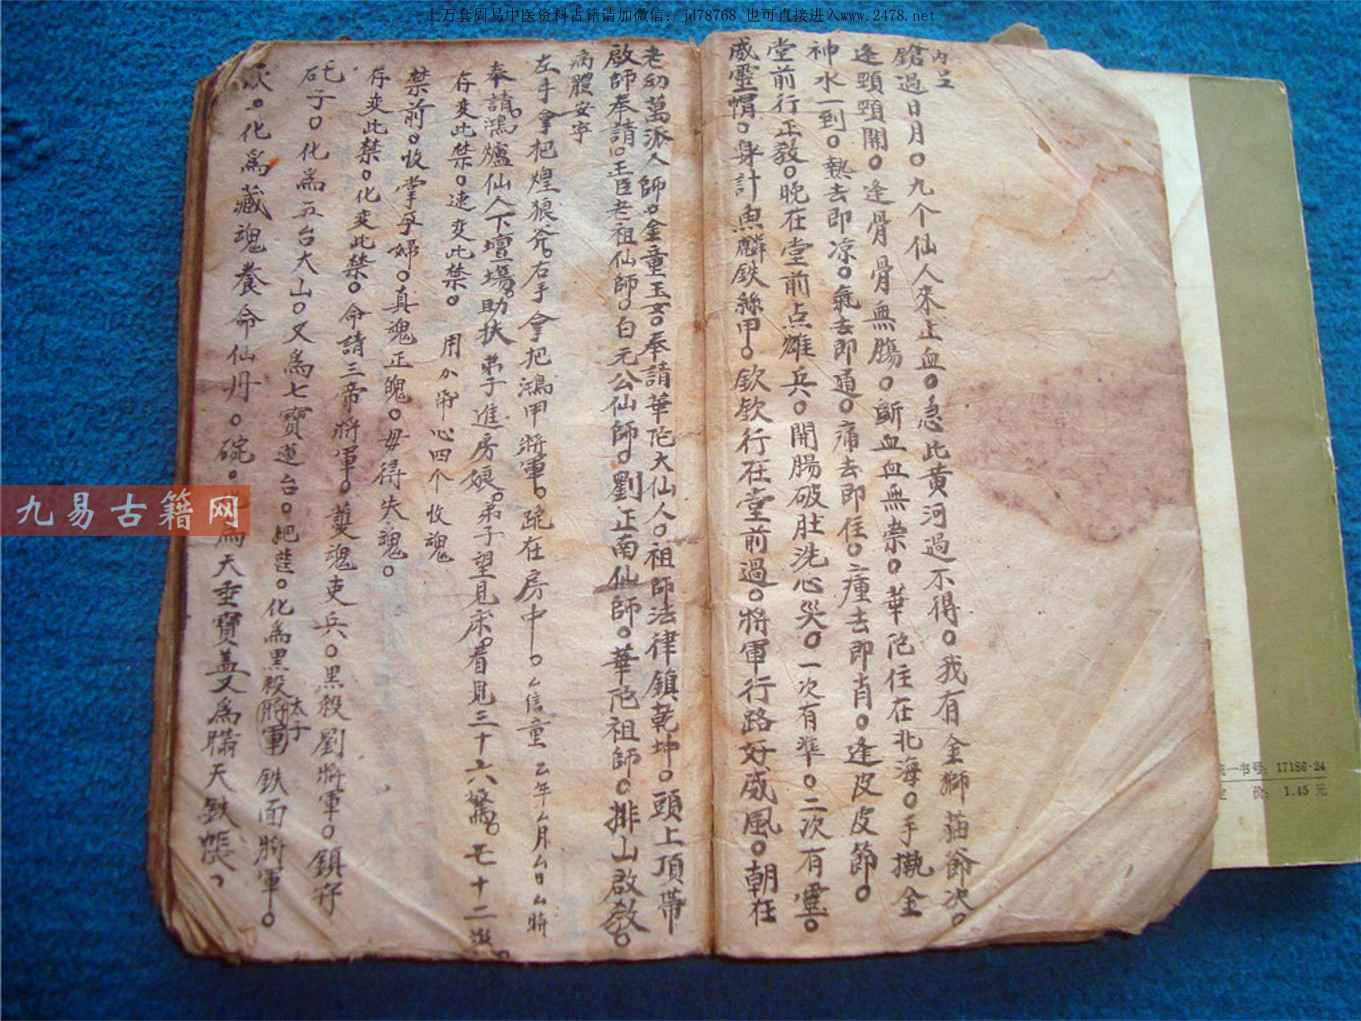 十万套周易中医资料古籍请加微信：jd78768 也可直接进入www.2478.net
内呈
鎗過日月。九个仙人来止血。急此黄河過不得。我有金獅茄節次。
逢頸頸開。逢骨骨無腸。断血血無崇。華陀住在北海。手擑金
神水一到。熱去即凉。氣去即通。痛去即住。瘇去即肖。逢皮皮節。
堂前行正教。晚在堂前点雄兵。開腸破肚洗心哭。一次有準。二次有靈。
威靈帽。身計魚麟鉄絲甲。欽欽行在堂前過。將軍行路好威風。朝在
老幼萬派人師。金童玉女。奉請華陀大仙人。祖師法律鎮乾坤。頭上頂帶
啟師奉請。王臣老祖仙師。白元公仙師。劉正南仙師。華陀祖師。排山啟教。
病體安寧
左手拿把煌狼斧。右手拿把鴻甲將軍。跪在房中。厶信童厶年厶月厶日厶時
奉請鴻爐仙人下壇場。助扶弟子進房娘。弟子望見床。看見三十六驚。七十二
存变此禁。速变此禁。用 心四个收魂
禁前。收掌孕婦。真魂正魄。毋得失魂。
存变此禁。化变此禁。命請三帝將軍。魂吏兵。黑殺劉將軍。鎮存
化為五台大山。又為七寶蓮台。化為黑殺將軍太子鉄面將軍。
化為藏魂養命仙丹。碇。為天垂寶蓋又為瞞天鉄帳、
九易古籍网
统一书号：17186·24
定 价：1.45元